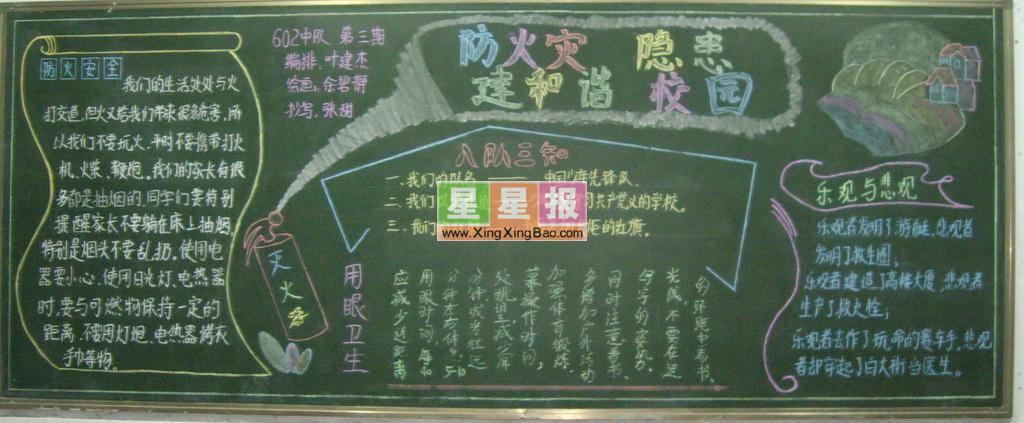 602中队 第三期
编排:叶建杰
绘画:余碧舒
书写:张甜
防火灾 隐患
建和谐 校园
防火安全
我们的生活处处与火
打交道,但火又给我们带来很多危害,所
以我们不要玩火,平时不要携带打火
机,火柴、鞭炮。我们的家长有很
多都是抽烟的,同学们要特别
提醒家长不要躺在床上抽烟,
特别是烟头不要乱扔。使用电
器要小心,使用日光灯、电热器
时,要与可燃物保持一定的
距离,不要用灯炮、电热器烤衣
手巾等物。
灭火
入队三知
一、我们的队名 中国少年先锋队.
二、我们 共产党义的学校。
三、我们 的红旗。
星星报
www.XingXingBao.com
用眼卫生
的环境中看书。
光线不要在过
句子的姿势、
同时注意看书、
多参加户外活动
加强体育锻炼,
幕操作时间,
处视,至或在屏
分钟或当,经远
分钟左右休息5-10
用眼时间,每40
应减少近距离
乐观与悲观
乐观者发明了游艇,悲观者
发明了救生圈;
乐观者建造了高楼大厦,悲观者
生产了救火栓;
乐观者去作了玩命的赛车手,悲观
者却穿起了白大街当医生。